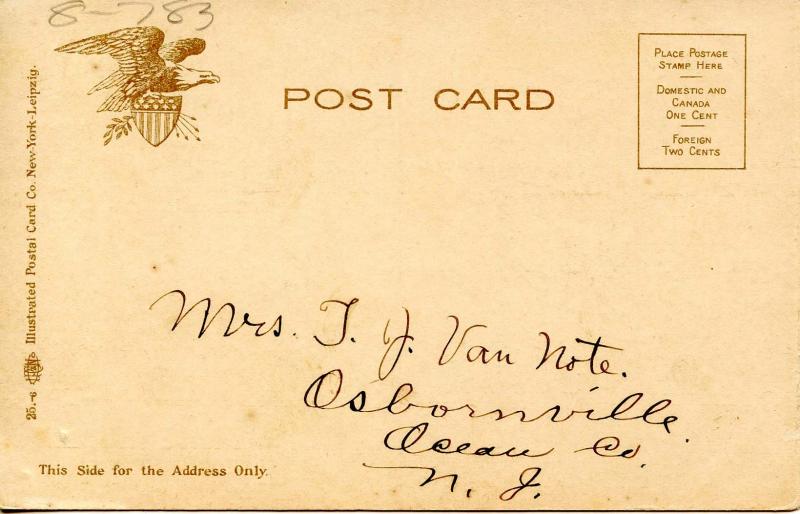 8-783
POST CARD
PLACE POSTAGE
STAMP HERE
DOMESTIC AND
CANADA
ONE CENT
FOREIGN
TWO CENTS
25.-6 Illustrated Postal Card Co. New-York-Leipzig.
Mrs. T. J. Van Note.
Osbornville
Ocean Co.
N. J.
This Side for the Address Only.